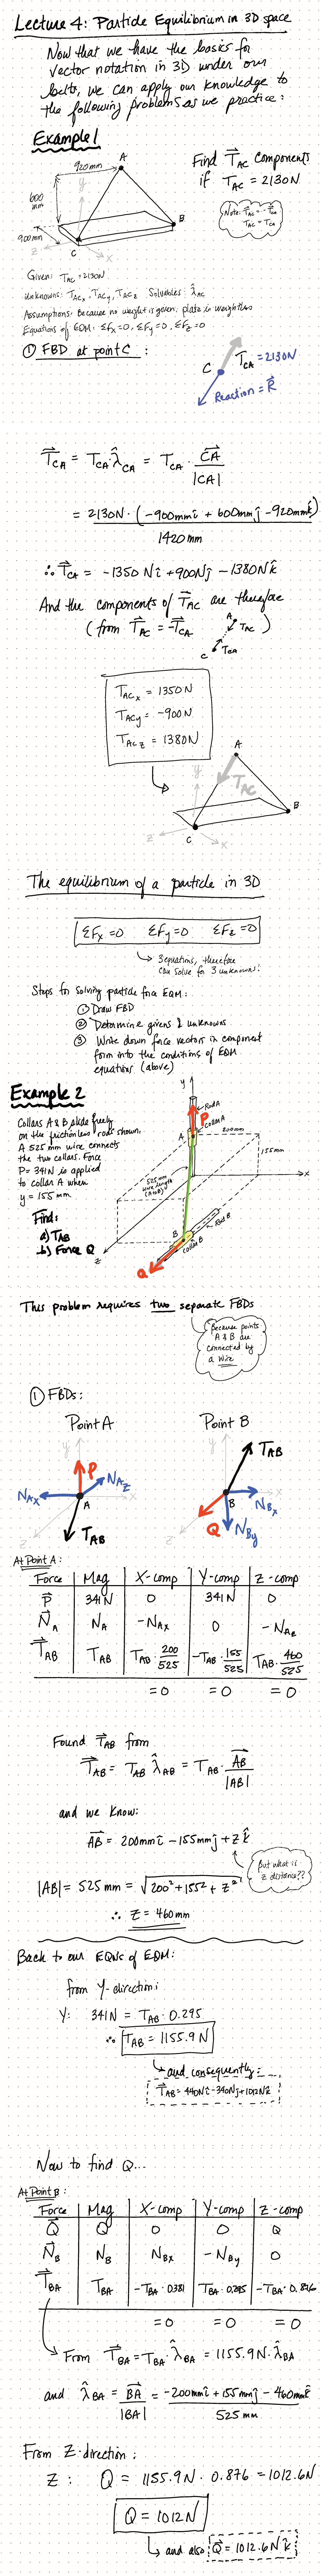 Lecture 4: Particle Equilibrium in 3D space
Now that we have the basics for
vector notation in 3D under our
belts, we can apply our knowledge to
the following problems as we practice:
Example 1
920mm
A
600
mm
y
900mm
B
C
z
x
Find T⃗AC components
if TAC = 2130N
Note: T⃗AC = -T⃗CA
TAC = TCA
Given: TAC = 2130N
Unknowns: TACx, TACy, TACz Solvables: λ̂AC
Assumptions: Because no weight is given, plate is weightless
Equations of EQM: ΣFx=0, ΣFy=0, ΣFz=0
① FBD at point C:
C
TCA = 2130N
Reaction = R⃗
T⃗CA = TCA·λ̂CA = TCA · CA⃗/|CA|
= 2130N · (-900mm î + 600mm ĵ - 920mm k̂)
1420mm
∴ T⃗CA = -1350 N î + 900N ĵ - 1380N k̂
And the components of T⃗AC are therefore
(from T⃗AC = -T⃗CA
A
TAC
TCA
C
)
TACx = 1350N
TACy = -900N
TACz = 1380N
y
A
TAC
B
z
C
x
The equilibrium of a particle in 3D
ΣFx=0 ΣFy=0 ΣFz=0
3 equations, therefore
can solve for 3 unknowns!
Steps for solving particle force EQM:
① Draw FBD
② Determine givens & unknowns
③ Write down force vectors in component
form into the conditions of EQM
equations (above)
Example 2
Collars A & B slide freely
on the frictionless rods shown.
A 525mm wire connects
the two collars. Force
P = 341N is applied
to collar A when
y = 155mm
Find:
a) TAB
b) Force Q
y
Rod A
P
Collar A
A
200mm
155mm
525mm
wire length
(A to B)
x
z
B
Rod B
Collar B
Q
This problem requires two separate FBDs
Because points
A & B are
connected by
a wire
① FBDs:
Point A
Point B
y
P
NAz
NAx
A
x
z
TAB
y
TAB
B
x
NBx
Q
NBy
z
At Point A:
Force Mag X-comp Y-comp Z-comp
P⃗ 341N 0 341N 0
N⃗A NA -NAx 0 -NAz
T⃗AB TAB TAB·200/525 -TAB·155/525 TAB·460/525
=0 =0 =0
Found T⃗AB from
T⃗AB = TAB λ̂AB = TAB · AB⃗/|AB|
and we know:
AB⃗ = 200mm î - 155mm ĵ + z k̂
But what is
z distance??
|AB| = 525mm = √200² + 155² + z²
∴ z = 460mm
Back to our EQNs of EQM:
from Y-direction:
Y: 341N = TAB·0.295
∴ TAB = 1155.9N
and consequently:
T⃗AB = 440N î - 340N ĵ + 1012N k̂
Now to find Q...
At Point B:
Force Mag X-comp Y-comp Z-comp
Q⃗ Q 0 0 Q
N⃗B NB NBx -NBy 0
T⃗BA TBA -TBA·0.381 TBA·0.295 -TBA·0.876
=0 =0 =0
From T⃗BA = TBA·λ̂BA = 1155.9N·λ̂BA
and λ̂BA = BA⃗/|BA| = -200mm î + 155mm ĵ - 460mm k̂
525mm
From Z-direction:
Z: Q = 1155.9N · 0.876 = 1012.6N
Q = 1012N
and also Q⃗ = 1012.6N k̂